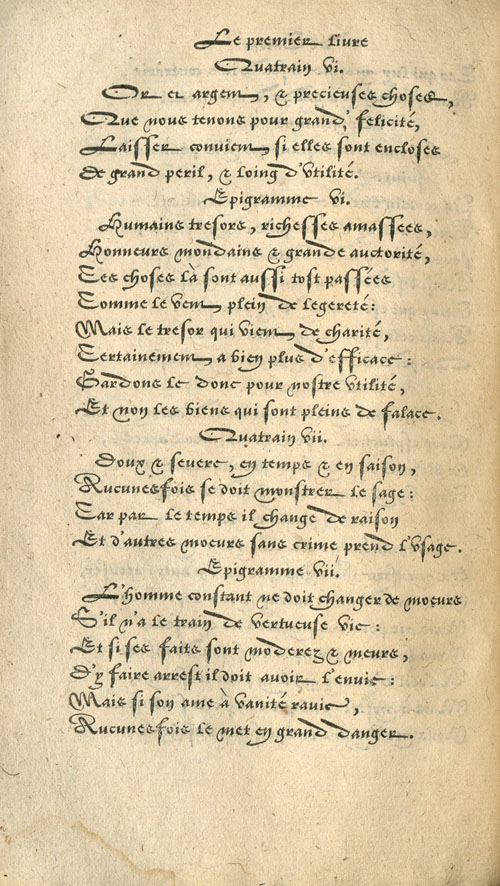 Le premier livre
Quatrain vi.
Or et argent, & precieuses choses,
Que nous tenons pour grand' felicité,
Laisser convient, si elles sont encloses
De grand peril, & loing d'vtilité.
Epigramme vi.
Humains tresors, richesses amassees,
Honneurs mondains & grande auctorité,
Ces choses là sont aussi tost passées
Comme le vent, plein de legereté:
Mais le tresor qui vient, de charité,
Certainement, a bien plus d'efficace:
Gardons le donc pour nostre vtilité,
Et non les biens qui sont pleins de falace.
Quatrain vii.
Doux & severe, en temps & en saison,
Aucunesfois se doit monstrer le sage:
Car par le temps il change de raison
Et d'autres moeurs sans crime prend l'vsage.
Epigramme vii.
L'homme constant ne doit changer de moeurs
S'il n'a le train de vertueuse vie:
Et si ses faits sont moderez & meurs,
D'y faire arrest il doit avoir l'envie:
Mais si son ame à vanité ravie,
Aucunesfois le met en grand danger.